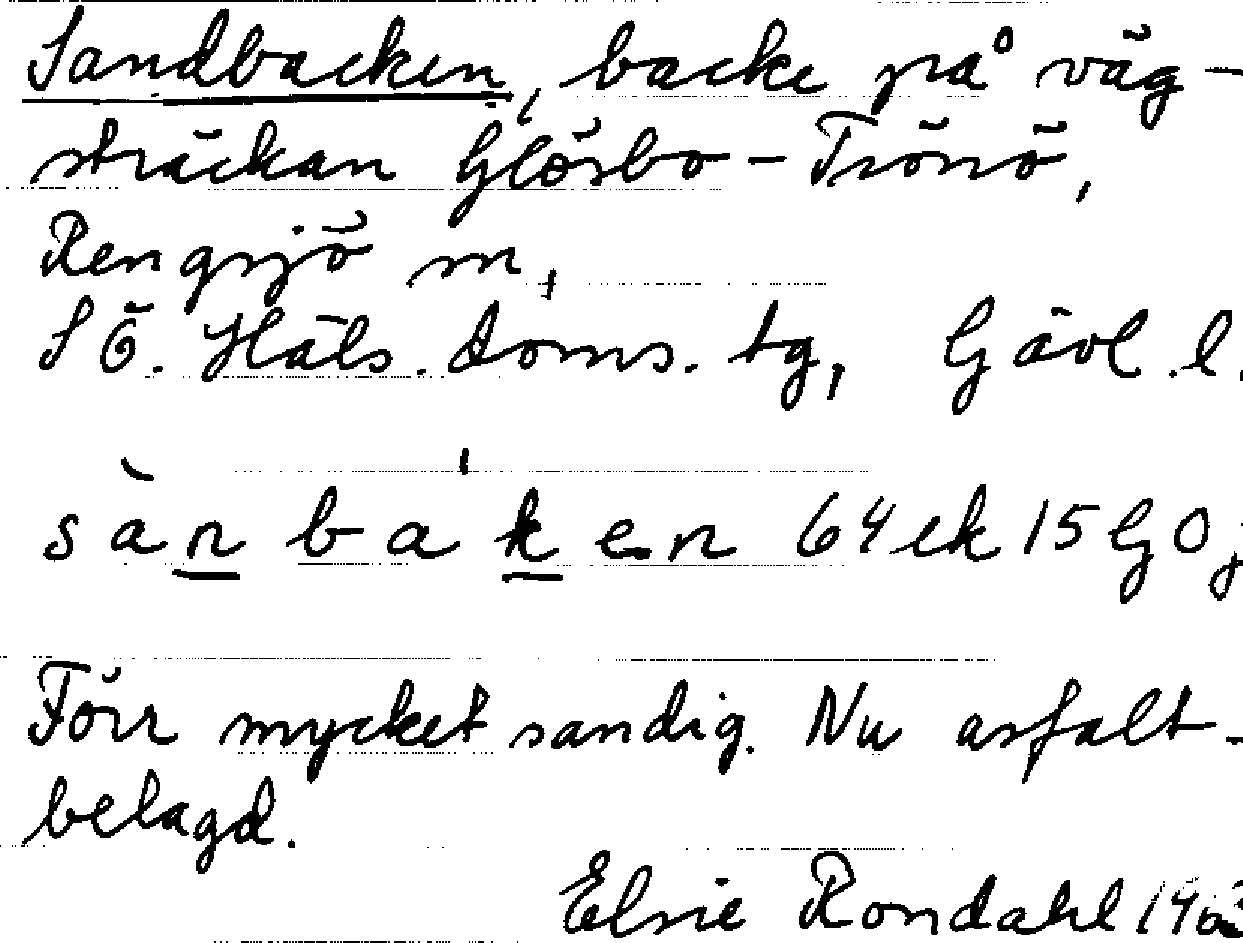 Sandbacken, backe på väg-
sträckan Glösbo - Trönö,
Rengsjö sn,
SÖ. Häls. doms. tg, Gävl. l.
sànba'ken 64 ek 15 G 0 j
Förr mycket sandig. Nu asfalt-
belagd.
Elsie Rondahl 1963